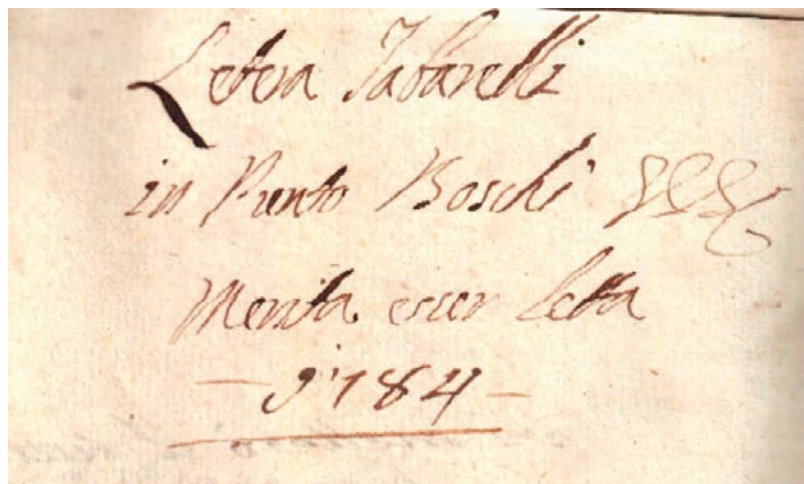 Letera Tabarelli
in Punto Boschi
Merita esser Letta
1784